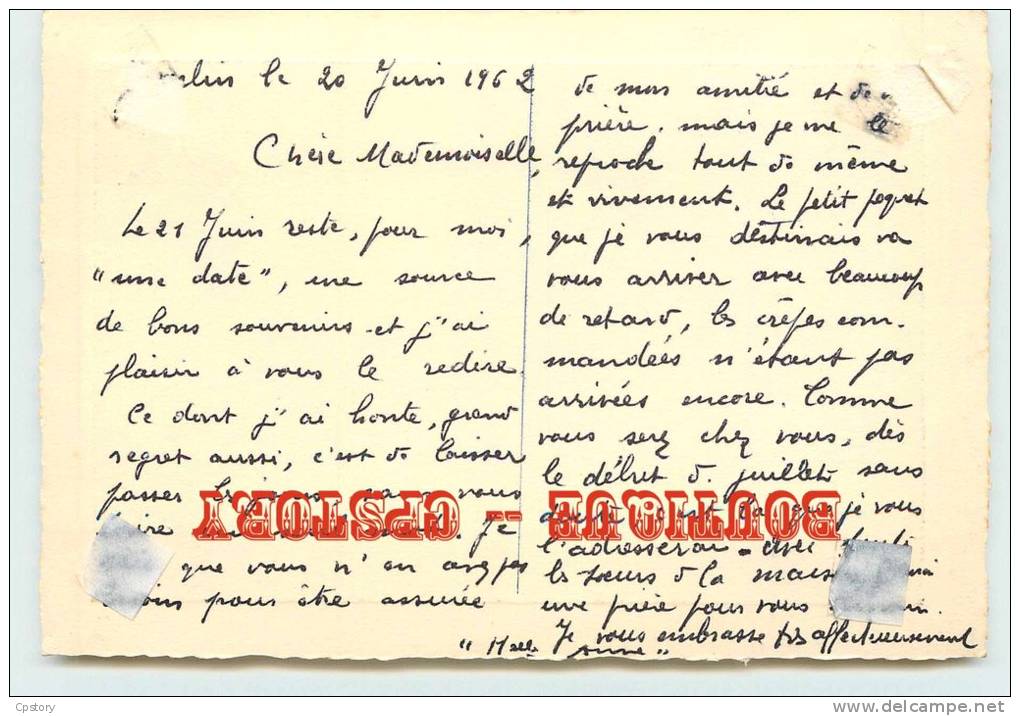 le 20 Juin 1962
Chère Mademoiselle,
Le 21 Juin reste, pour moi,
"une date", une source
de bons souvenirs et j'ai
plaisir à vous le redire.
Ce dont j'ai honte, grand
regret aussi, c'est de laisser
passer les jours sans vous
Je
que vous n'en avez pas
pour être assurée
de mon amitié et de
prière. mais je me le
reproche tout de même
et vivement. Le petit paquet
que je vous destinais va
vous arriver avec beaucoup
de retard, les crêpes com-
mandées n'étant pas
arrivées encore. Comme
vous serez chez vous, dès
le début de juillet sans
doute c'est là que je vous
l'adresserai - avec
les soeurs de la
une prière pour vous
Je vous embrasse très affectueusement
"Melle Anne"
BOUTIQUE -- CPSTORY
Cpstory
delcampe.net